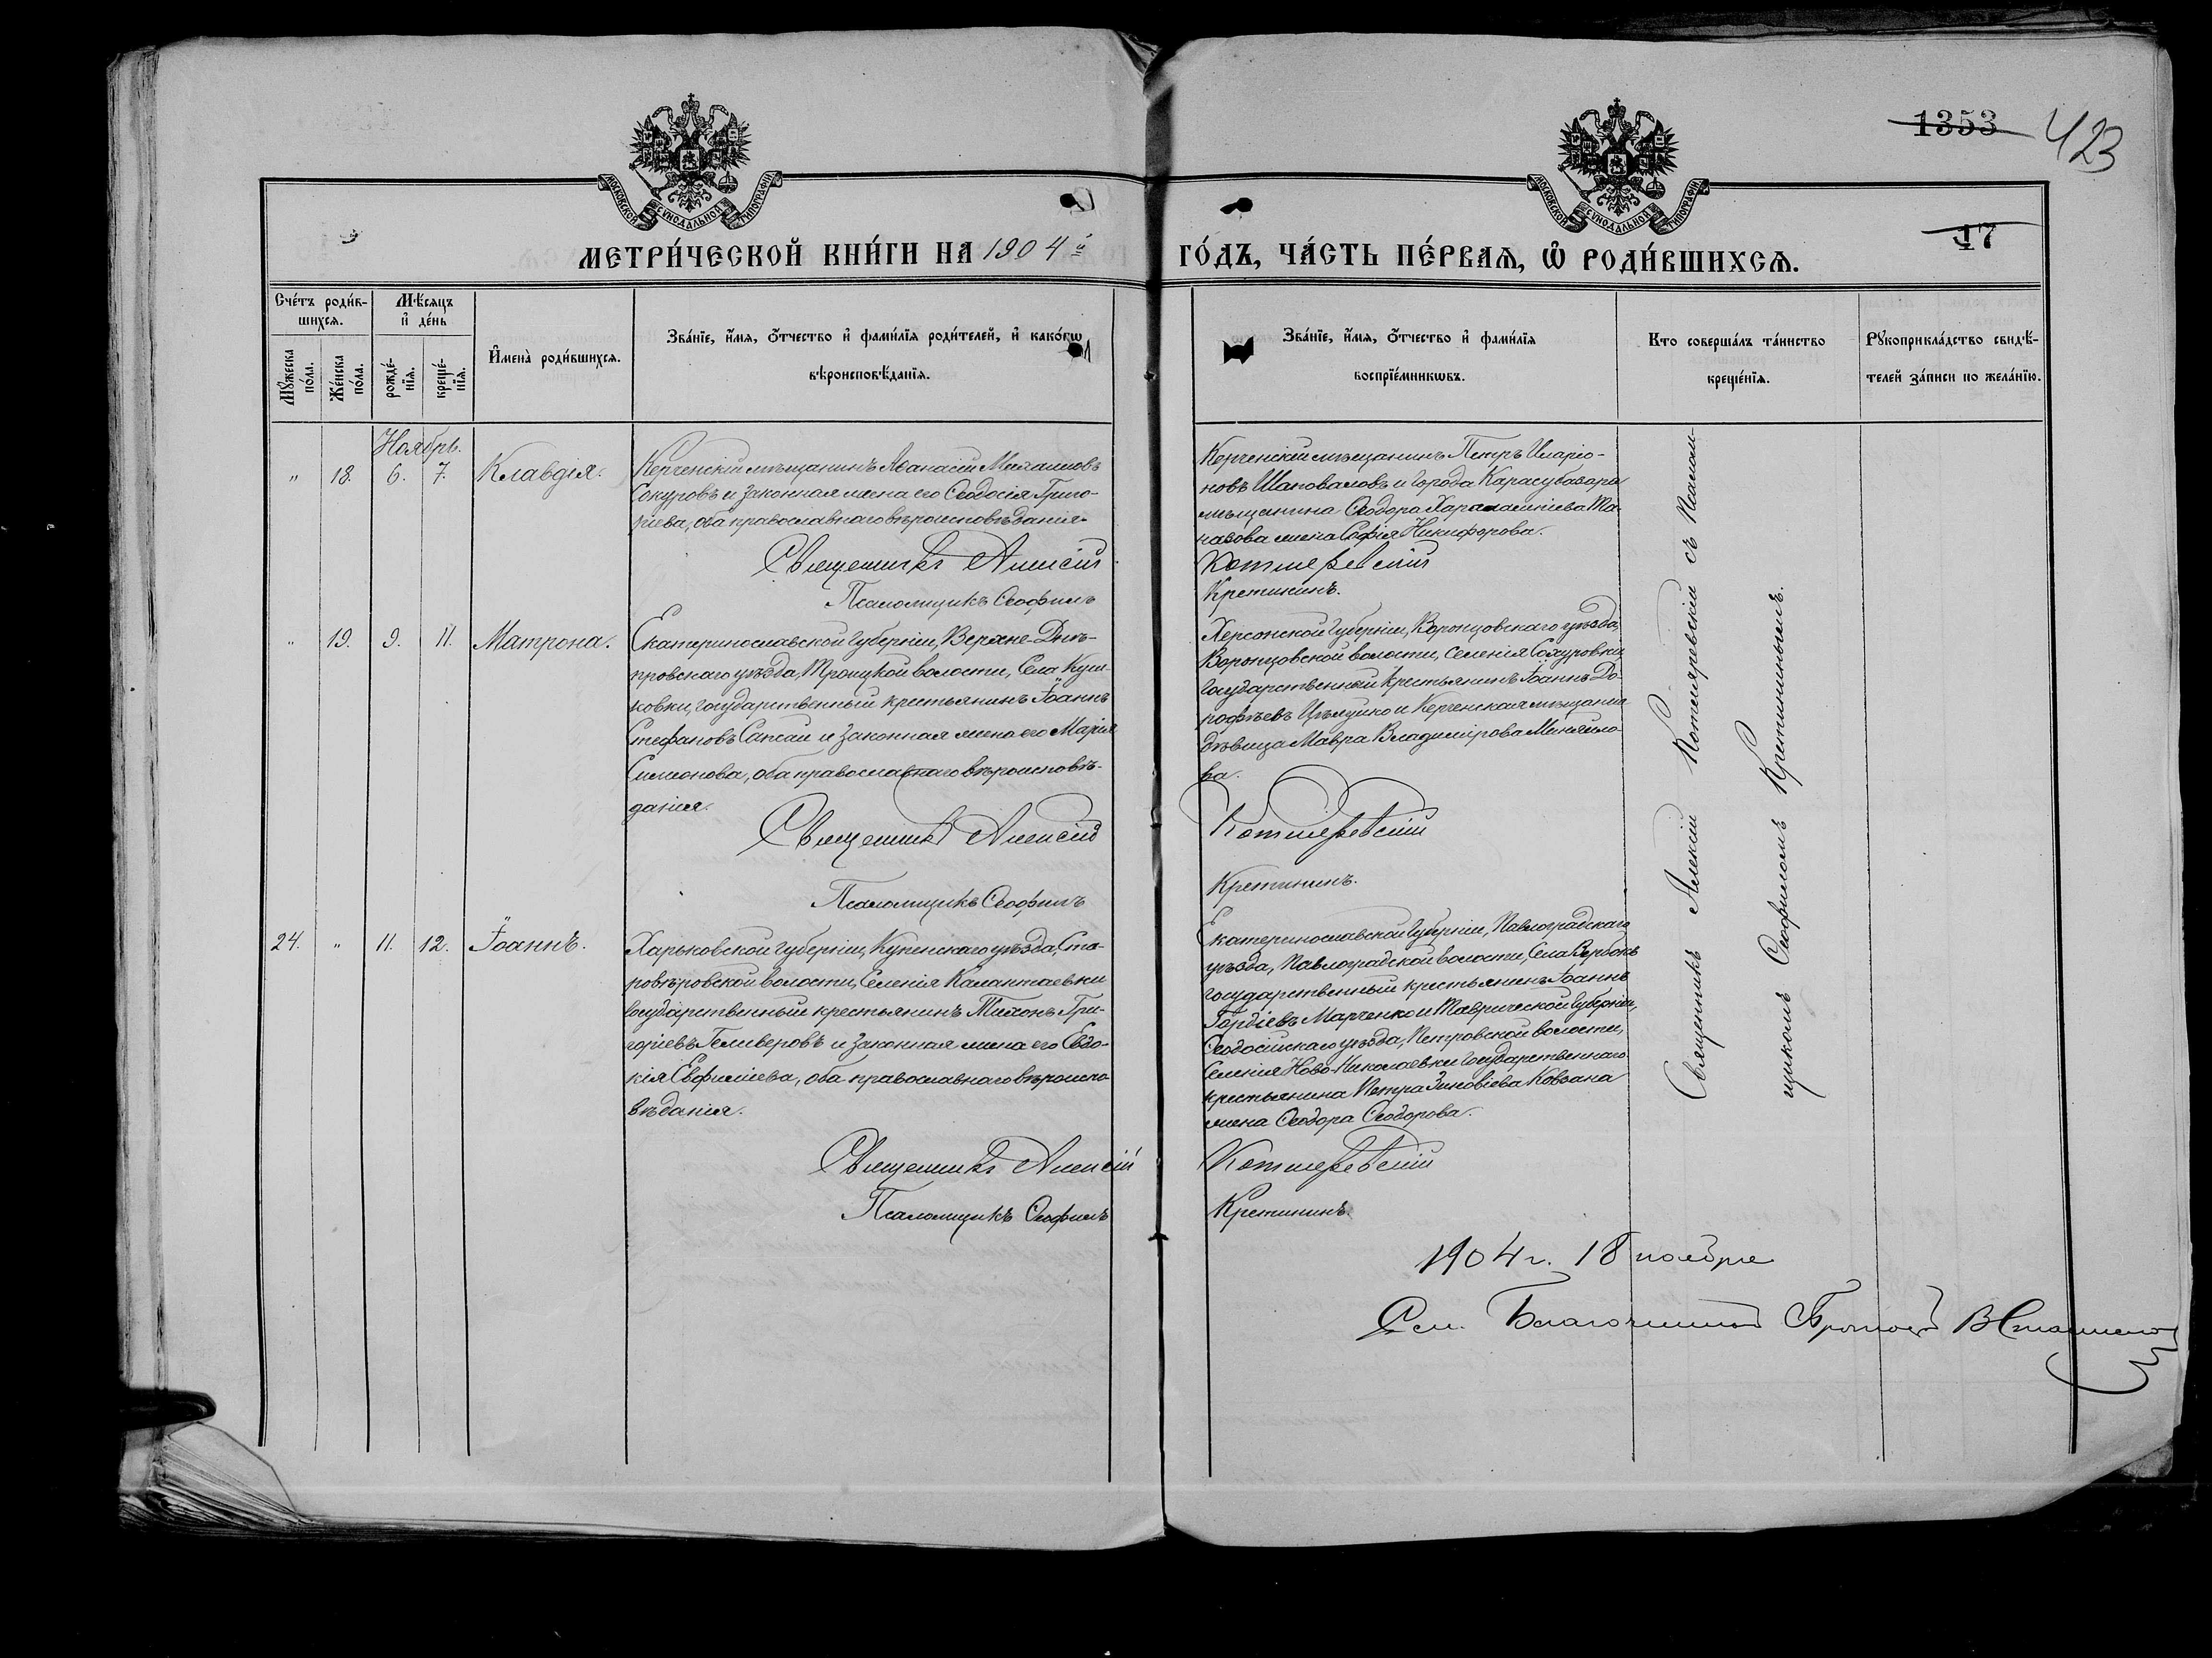 1353 423
МОСКОВСКОЙ СѴНОДАЛЬНОЙ ТИПОГРАФІИ
МОСКОВСКОЙ СѴНОДАЛЬНОЙ ТИПОГРАФІИ
17
МЕТРИ́ЧЕСКОЙ КНИ́ГИ НА 1904й ГО́ДЪ, ЧА́СТЬ ПЕ́РВАѦ, Ѡ҆ РОДИ́ВШИХСѦ.
Сче́тъ роди́в-
шихсѧ.
Мꙋ́жеска по́ла.
Же́нска по́ла.
Мѣ́сяцъ
и҆ де́нь
рожде́-
нїѧ.
креще́-
нїѧ.
И҆мена̀ роди́вшихсѧ.
Зва́нїе, и҆́мѧ, ѻ҆́тчество и҆ фами́лїѧ роди́телей, и҆ како́гѡ
вѣроисповѣ́данїѧ.
Зва́нїе, и҆́мѧ, ѻ҆́тчество и҆ фами́лїѧ
воспрїе́мникѡвъ.
Кто соверша́лъ та́инство
креще́нїѧ.
Рꙋкоприкла́дство свидѣ́-
телей за́писи по жела́нїю.
Ноябрь.
" 18. 6. 7. Клавдія.
Керченскій мѣщанинъ Аѳанасій Михаиловъ
Сокуровъ и законная жена его Ѳеодосія Григо-
ріева, оба православнаго вѣроисповѣданія.
Священникъ Алексій
Псаломщикъ Ѳеофилъ
Керченскій мѣщанинъ Петръ Иларіо-
новъ Шаповаловъ и города Карасубазара
мѣщанина Ѳеодора Харалампіева
жена Софія Никифорова.
Котляревскій
Кретининъ.
" 19. 9. 11. Матрона.
Екатеринославской губерніи, Верхне-Днѣ-
провскаго уѣзда, Троицкой волости, Села
государственный крестьянинъ Іоаннъ
Стефановъ и законная жена его Марія
Симеонова, оба православнаго вѣроисповѣ-
данія.
Священникъ Алексій
Псаломщикъ Ѳеофилъ
Херсонской губерніи, Воронцовскаго уѣзда,
Воронцовской волости, селенія
государственный крестьянинъ Іоаннъ До-
рофѣевъ и Керченская мѣщанка
дѣвица Мавра Владимірова Меняйло-
ва.
Котляревскій
Кретининъ.
24. " 11. 12. Іоаннъ.
Харьковской губерніи, Купенскаго уѣзда, Ста-
ровѣровской волости, Селенія Калантаевки
государственный крестьянинъ Тихонъ Гри-
горіевъ Геливеровъ и законная жена его Евдо-
кія Евфиміева, оба православнаго вѣроиспо-
вѣданія.
Священникъ Алексій
Псаломщикъ Ѳеофилъ
Екатеринославской губерніи, Павлоградскаго
уѣзда, Павлоградской волости, Села Вербокъ
государственный крестьянинъ Іоаннъ
Гордіевъ Марченко и Таврической губерніи,
Ѳеодосійскаго уѣзда, Петровской волости,
Селенія Ново-Николаевки государственнаго
крестьянина Петра Зиновіева Ковзана
жена Ѳеодора Ѳеодорова.
Котляревскій
Кретининъ.
Священникъ Алексій Котляревскій съ Псалом-
щикомъ Ѳеофиломъ Кретининымъ.
1904 г. 18 ноября
Благочинный